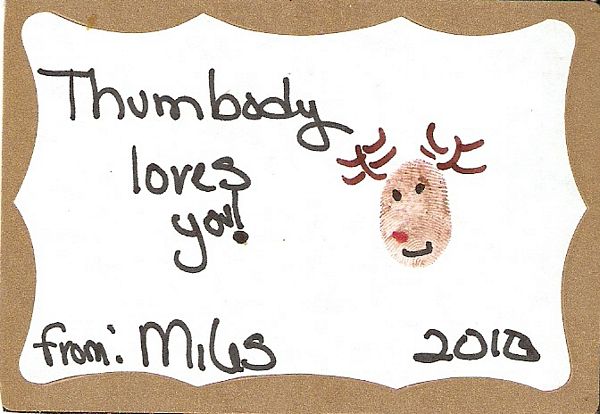 Thumbody
loves
you!
from: Miles
2010